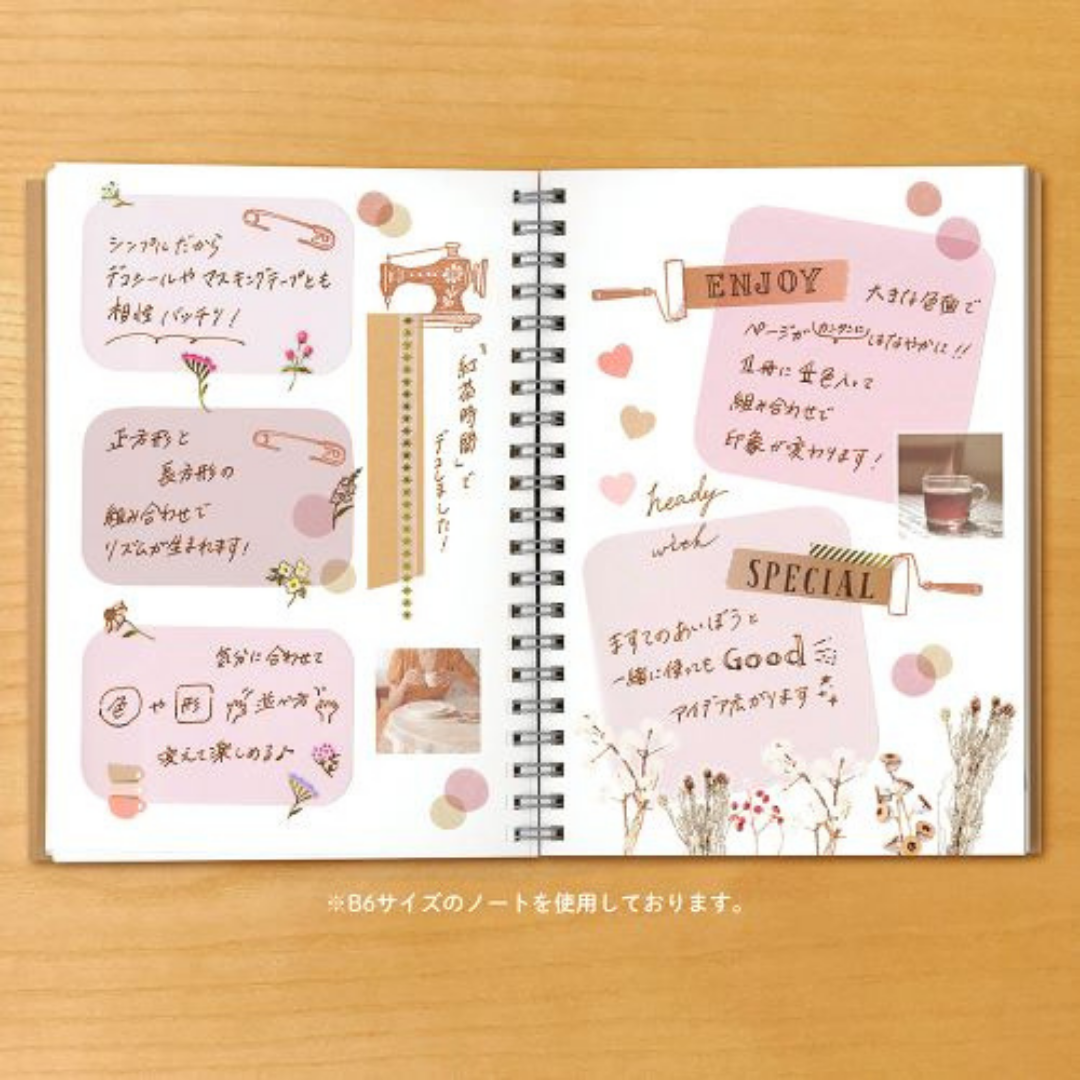 シンプルだから
デコシールや マスキングテープとも
相性バッチリ!
正方形と
長方形の
組み合わせで
リズムが生まれます!
気分に合わせて
色 や 形 並べ方
変えて楽しめる♪
「紅茶時間」で
デコしました!
ENJOY
大きな色面で
ページがカンタンにはなやかに!!
1冊に 全色入って
組み合わせで
印象が変わります!
heady
with
SPECIAL
ますてのあいぼうと
一緒に使っても Good
アイデア広がります
※B6サイズのノートを使用しております。